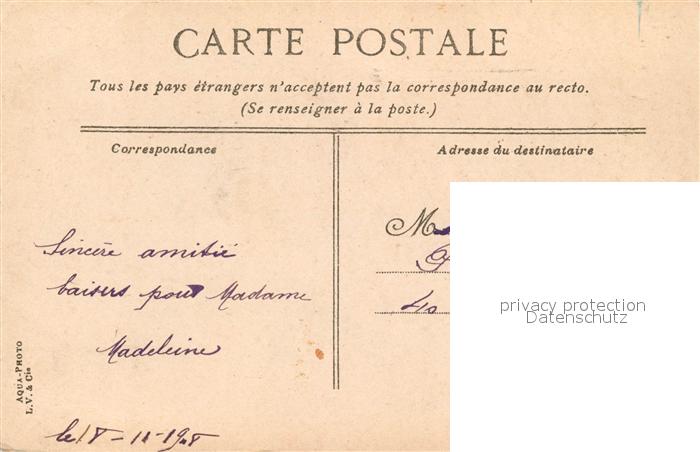 CARTE POSTALE
Tous les pays étrangers n'acceptent pas la correspondance au recto.
(Se renseigner à la poste.)
Correspondance
Adresse du destinataire
Sincère amitié
baisers pour Madame
Madeleine
le 18-11-
M
40
privacy protection
Datenschutz
AQUA-PHOTO
L.V. & Cie